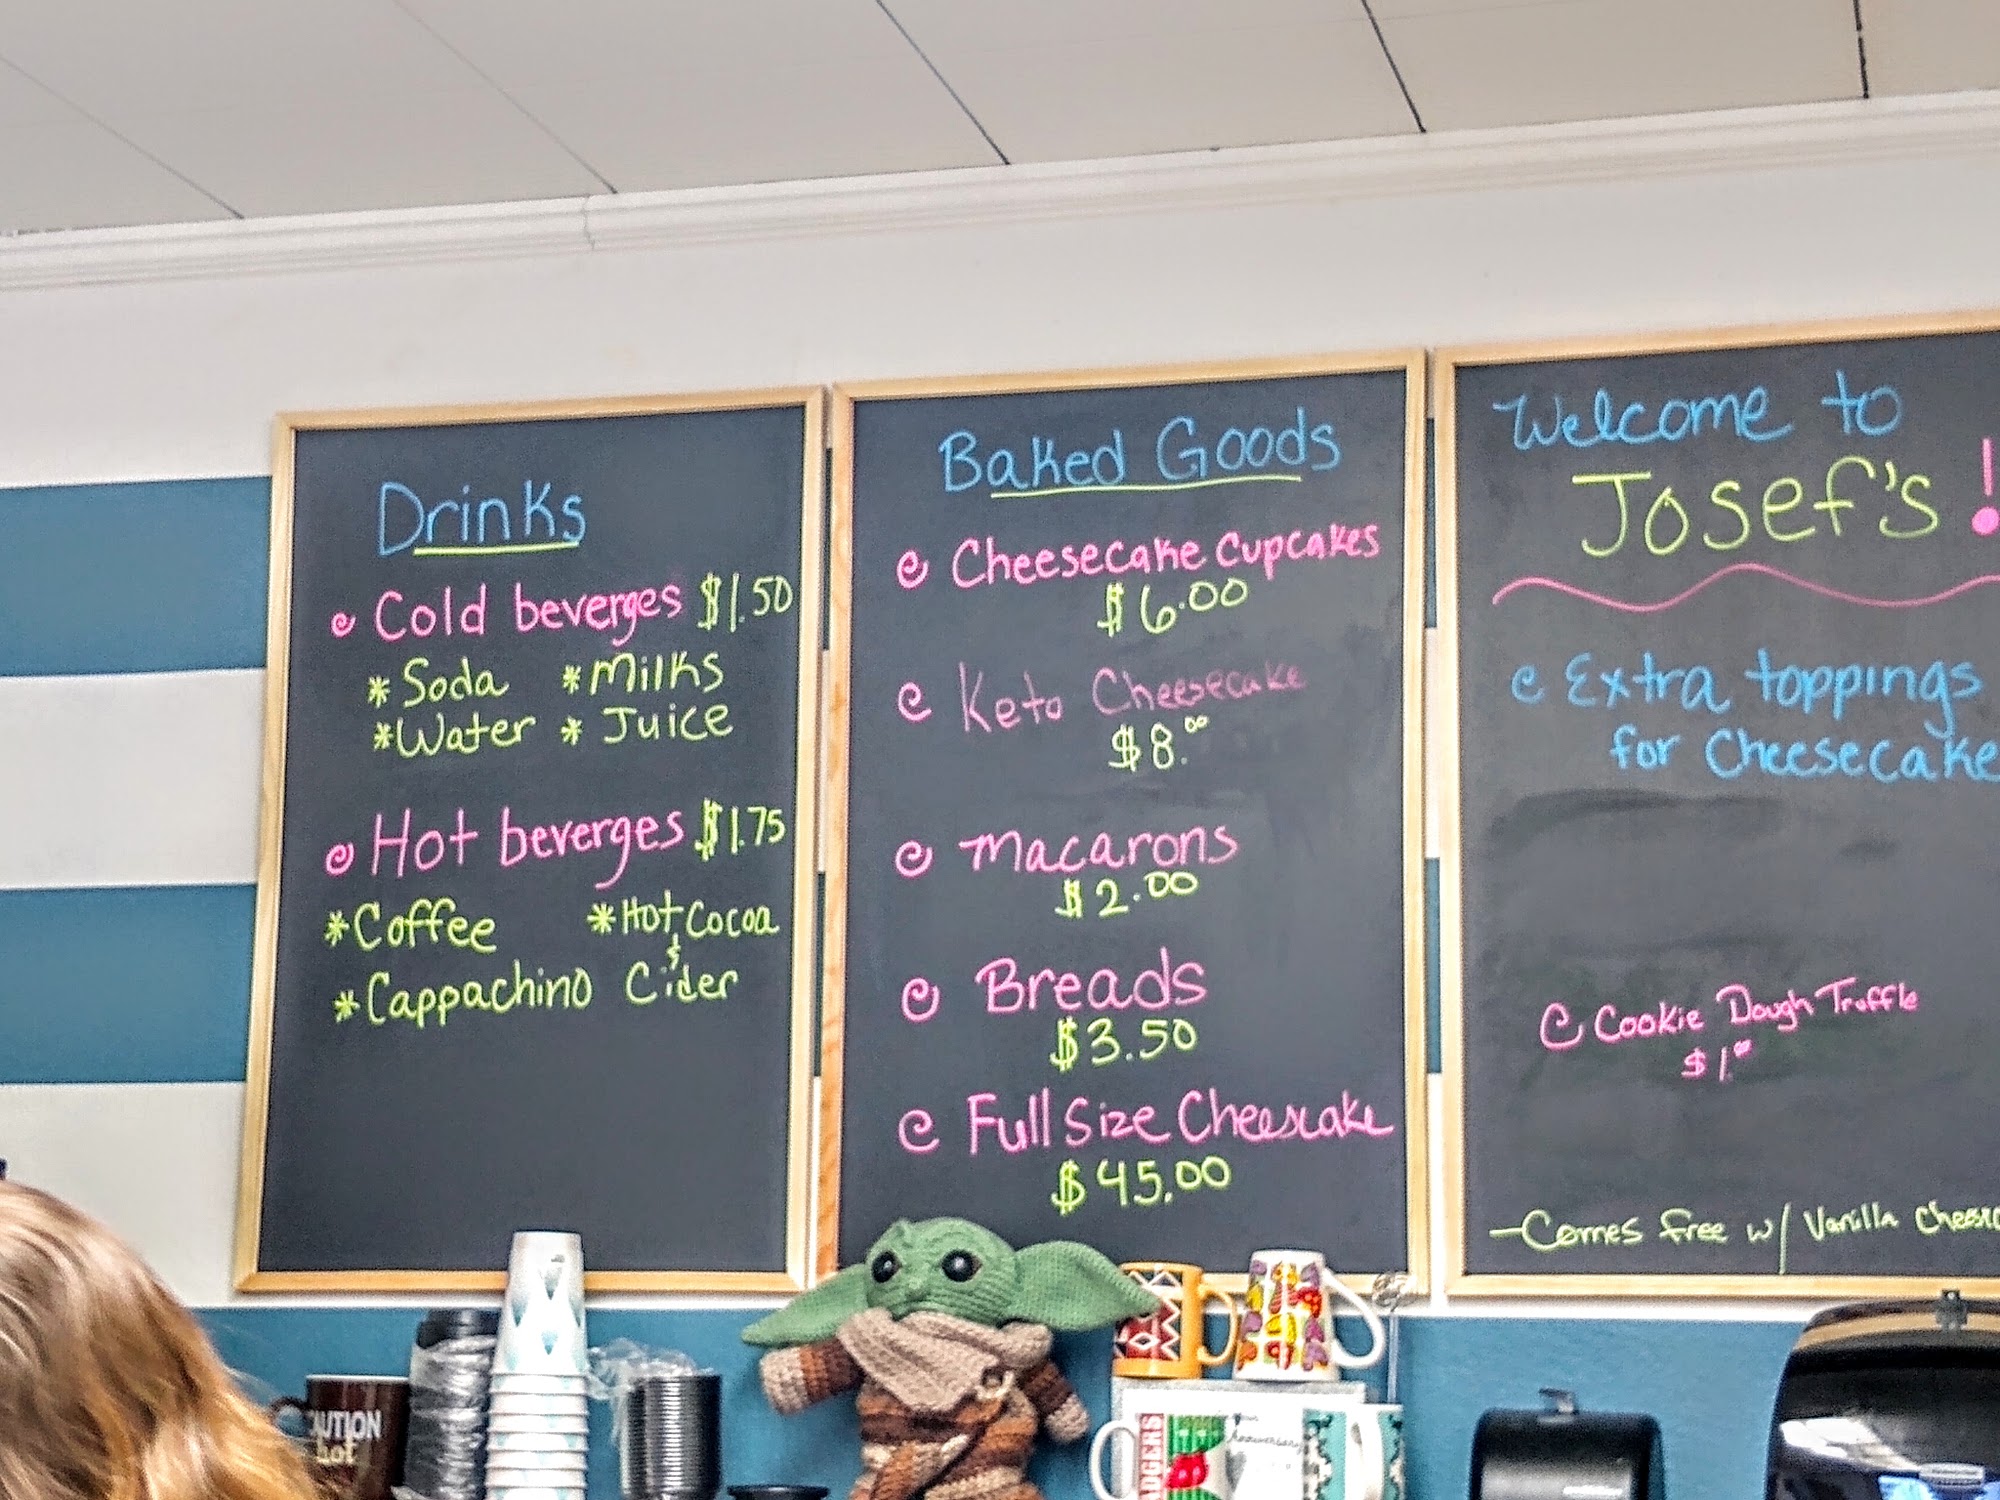 Drinks
Cold beverges $1.50
*Soda *Milks
*Water *Juice
Hot beverges $1.75
*Coffee *Hot Cocoa
&
*Cappachino Cider
Baked Goods
Cheesecake Cupcakes
$6.00
Keto Cheesecake
$8.00
Macarons
$2.00
Breads
$3.50
Full Size Cheesecake
$45.00
Welcome to
Josef's!
Extra toppings
for Cheesecake
Cookie Dough Truffle
$1.00
-Comes free w/ Vanilla
CAUTION
hot
Anniversary